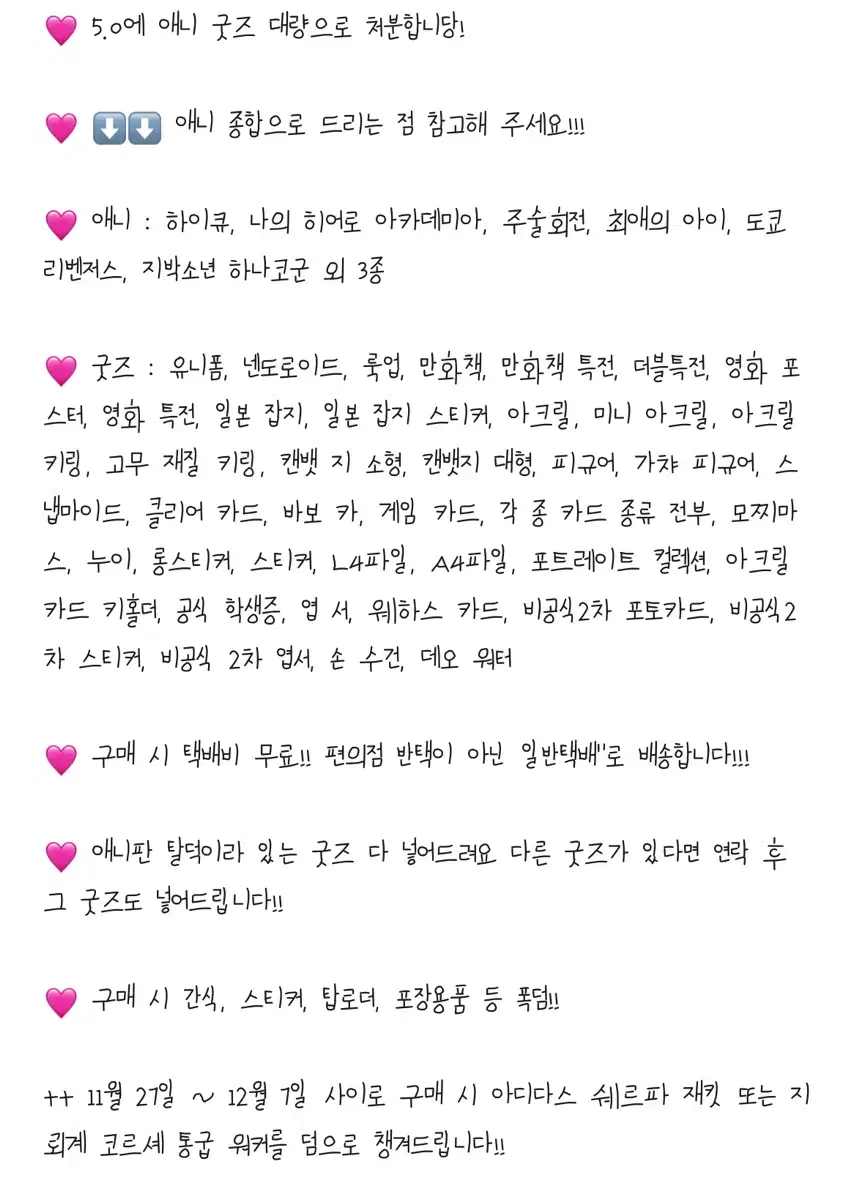 🩷 5.0에 애니 굿즈 대량으로 처분합니당!
🩷 ⬇️⬇️ 애니 종합으로 드리는 점 참고해 주세요!!!
🩷 애니 : 하이큐, 나의 히어로 아카데미아, 주술회전, 최애의 아이, 도쿄
리벤저스, 지박소년 하나코군 외 3종
🩷 굿즈 : 유니폼, 넨도로이드, 룩업, 만화책, 만화책 특전, 더블특전, 영화 포
스터, 영화 특전, 일본 잡지, 일본 잡지 스티커, 아크릴, 미니 아크릴, 아크릴
키링, 고무 재질 키링, 캔뱃 지 소형, 캔뱃지 대형, 피규어, 가챠 피규어, 스
냅마이드, 클리어 카드, 바보 카, 게임 카드, 각 종 카드 종류 전부, 모찌마
스, 누이, 롱스티커, 스티커, L4파일, A4파일, 포트레이트 컬렉션, 아크릴
카드 키홀더, 공식 학생증, 엽 서, 웨하스 카드, 비공식2차 포토카드, 비공식2
차 스티커, 비공식 2차 엽서, 손 수건, 데오 워터
🩷 구매 시 택배비 무료!! 편의점 반택이 아닌 일반택배"로 배송합니다!!!
🩷 애니판 탈덕이라 있는 굿즈 다 넣어드려요 다른 굿즈가 있다면 연락 후
그 굿즈도 넣어드립니다!!
🩷 구매 시 간식, 스티커, 탑로더, 포장용품 등 폭덤!!
++ 11월 27일 ~ 12월 7일 사이로 구매 시 아디다스 쉐르파 재킷 또는 지
뢰계 코르셰 통굽 워커를 덤으로 챙겨드립니다!!